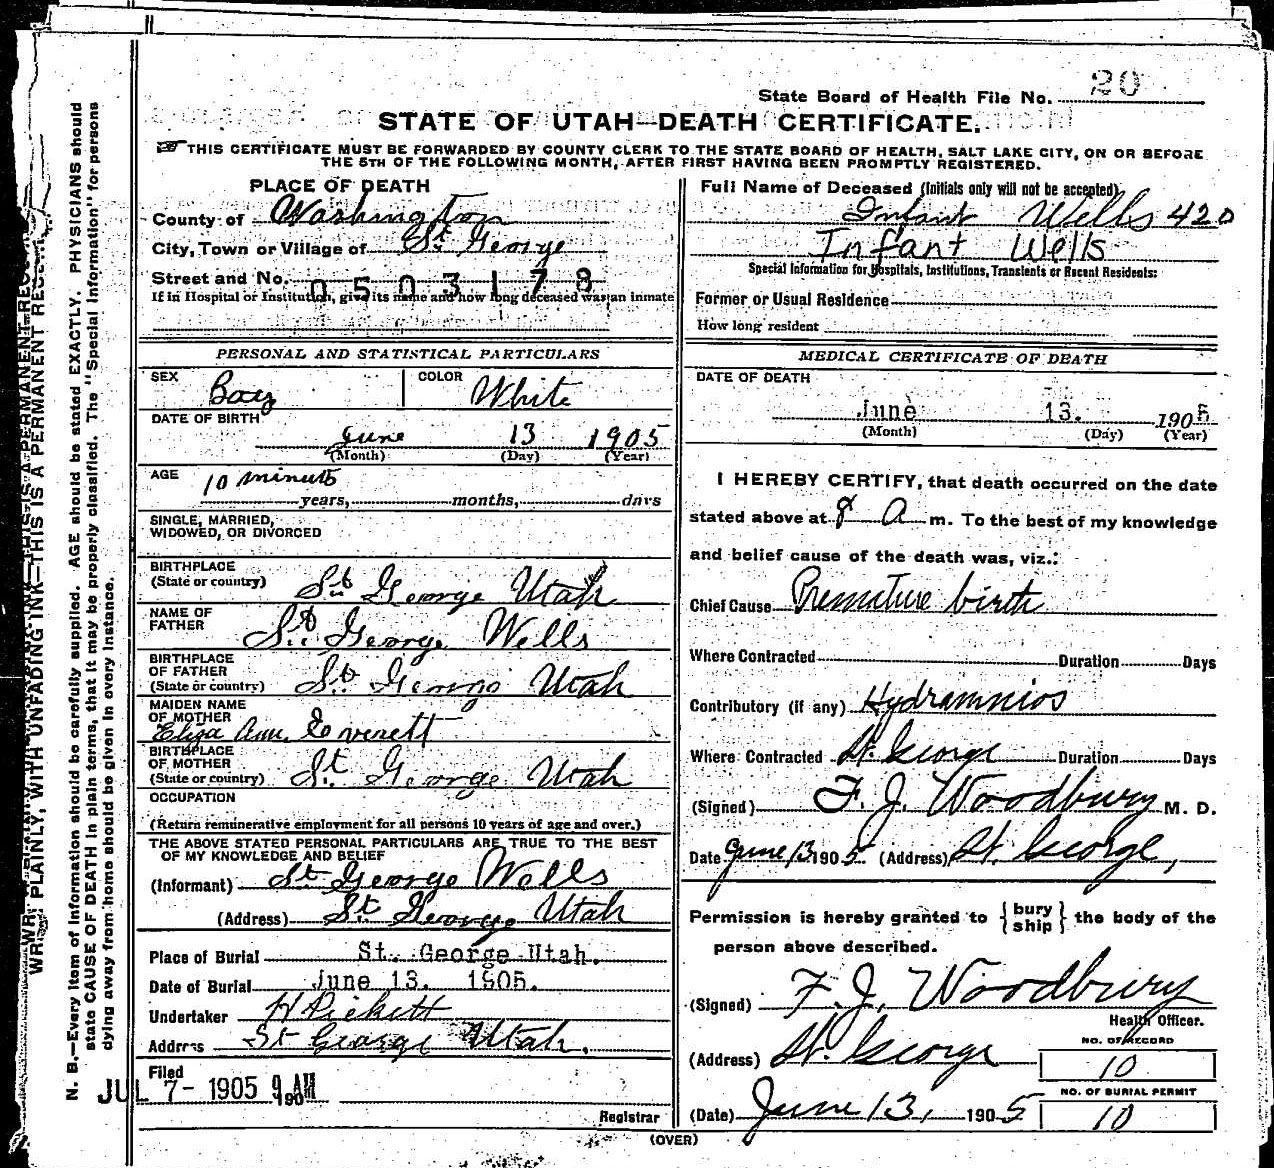 State Board of Health File No. 20
STATE OF UTAH—DEATH CERTIFICATE.
THIS CERTIFICATE MUST BE FORWARDED BY COUNTY CLERK TO THE STATE BOARD OF HEALTH, SALT LAKE CITY, ON OR BEFORE
THE 5TH OF THE FOLLOWING MONTH, AFTER FIRST HAVING BEEN PROMPTLY REGISTERED.
PLACE OF DEATH
County of Washington
City, Town or Village of St. George
Street and No.
0503178
If in Hospital or Institution, give its name and how long deceased was an inmate
PERSONAL AND STATISTICAL PARTICULARS
SEX Boy COLOR White
DATE OF BIRTH
June 13 1905
(Month) (Day) (Year)
AGE 10 minuts
years, months, days
SINGLE, MARRIED,
WIDOWED, OR DIVORCED
BIRTHPLACE
(State or country) St. George Utah
NAME OF
FATHER St. George Wells
BIRTHPLACE
OF FATHER
(State or country) St. George Utah
MAIDEN NAME
OF MOTHER
Eliza Ann Everett
BIRTHPLACE
OF MOTHER
(State or country) St. George Utah
OCCUPATION
(Return remunerative employment for all persons 10 years of age and over.)
THE ABOVE STATED PERSONAL PARTICULARS ARE TRUE TO THE BEST
OF MY KNOWLEDGE AND BELIEF
(Informant) St George Wells
(Address) St. George Utah
Place of Burial St. George Utah.
Date of Burial June 13. 1905.
Undertaker H Pickett
Address St George Utah.
Filed
JUL 7- 1905 9 AM
190
Registrar
Full Name of Deceased (Initials only will not be accepted)
Infant Wells 420
Infant Wells
Special Information for Hospitals, Institutions, Transients or Recent Residents:
Former or Usual Residence
How long resident
MEDICAL CERTIFICATE OF DEATH
DATE OF DEATH
June 13. 1905
(Month) (Day) (Year)
I HEREBY CERTIFY, that death occurred on the date
stated above at 8 A m. To the best of my knowledge
and belief cause of the death was, viz.:
Chief Cause Premature birth
Where Contracted Duration Days
Contributory (if any) Hydramnios
Where Contracted St. George Duration Days
(Signed) F. J. Woodbury M. D.
Date June 13 1905 (Address) St. George,
Permission is hereby granted to { bury ship } the body of the
person above described.
(Signed) F. J. Woodbury
Health Officer.
(Address) St. George
NO. OF RECORD
10
NO. OF BURIAL PERMIT
10
(Date) June 13, 1905
(OVER)
WRITE PLAINLY, WITH UNFADING INK—THIS IS A PERMANENT RECORD
N. B.—Every item of information should be carefully supplied. AGE should be stated EXACTLY. PHYSICIANS should
state CAUSE OF DEATH in plain terms, that it may be properly classified. The "Special Information" for persons
dying away from home should be given in every instance.